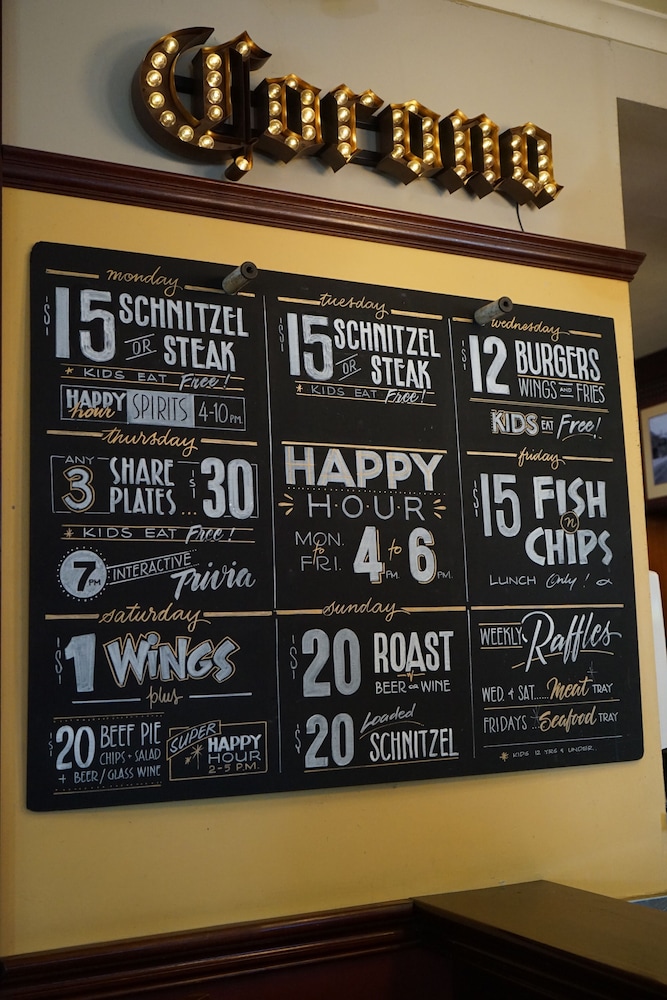 Corona
monday
$15 SCHNITZEL
OR STEAK
* KIDS EAT Free!
HAPPY hour SPIRITS 4-10 PM.
tuesday
$15 SCHNITZEL
OR STEAK
* KIDS EAT Free!
wednesday
$12 BURGERS
WINGS AND FRIES
KIDS EAT Free!
thursday
ANY 3 SHARE PLATES... $30
* KIDS EAT Free!
7PM INTERACTIVE Trivia
HAPPY
HOUR
MON. to FRI. 4 PM. to 6 PM.
friday
$15 FISH
n
CHIPS
LUNCH Only!
saturday
$1 WINGS
plus
$20 BEEF PIE
CHIPS + SALAD
+ BEER/GLASS WINE
SUPER HAPPY
HOUR
2-5 P.M.
sunday
$20 ROAST
w
BEER OR WINE
$20 Loaded
SCHNITZEL
WEEKLY Raffles
WED. & SAT......Meat TRAY
FRIDAYS...Seafood TRAY
* KIDS 12 YRS & UNDER.